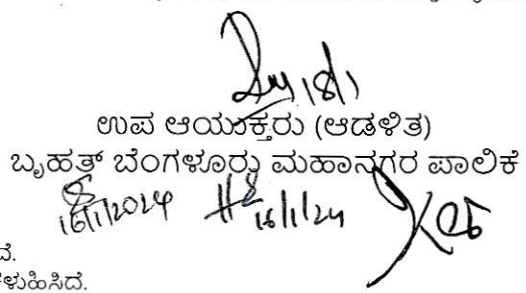 18/1
ಉಪ ಆಯುಕ್ತರು (ಆಡಳಿತ)
ಬೃಹತ್ ಬೆಂಗಳೂರು ಮಹಾನಗರ ಪಾಲಿಕೆ
16/1/2024 16/1/24
ಳುಹಿಸಿದೆ.